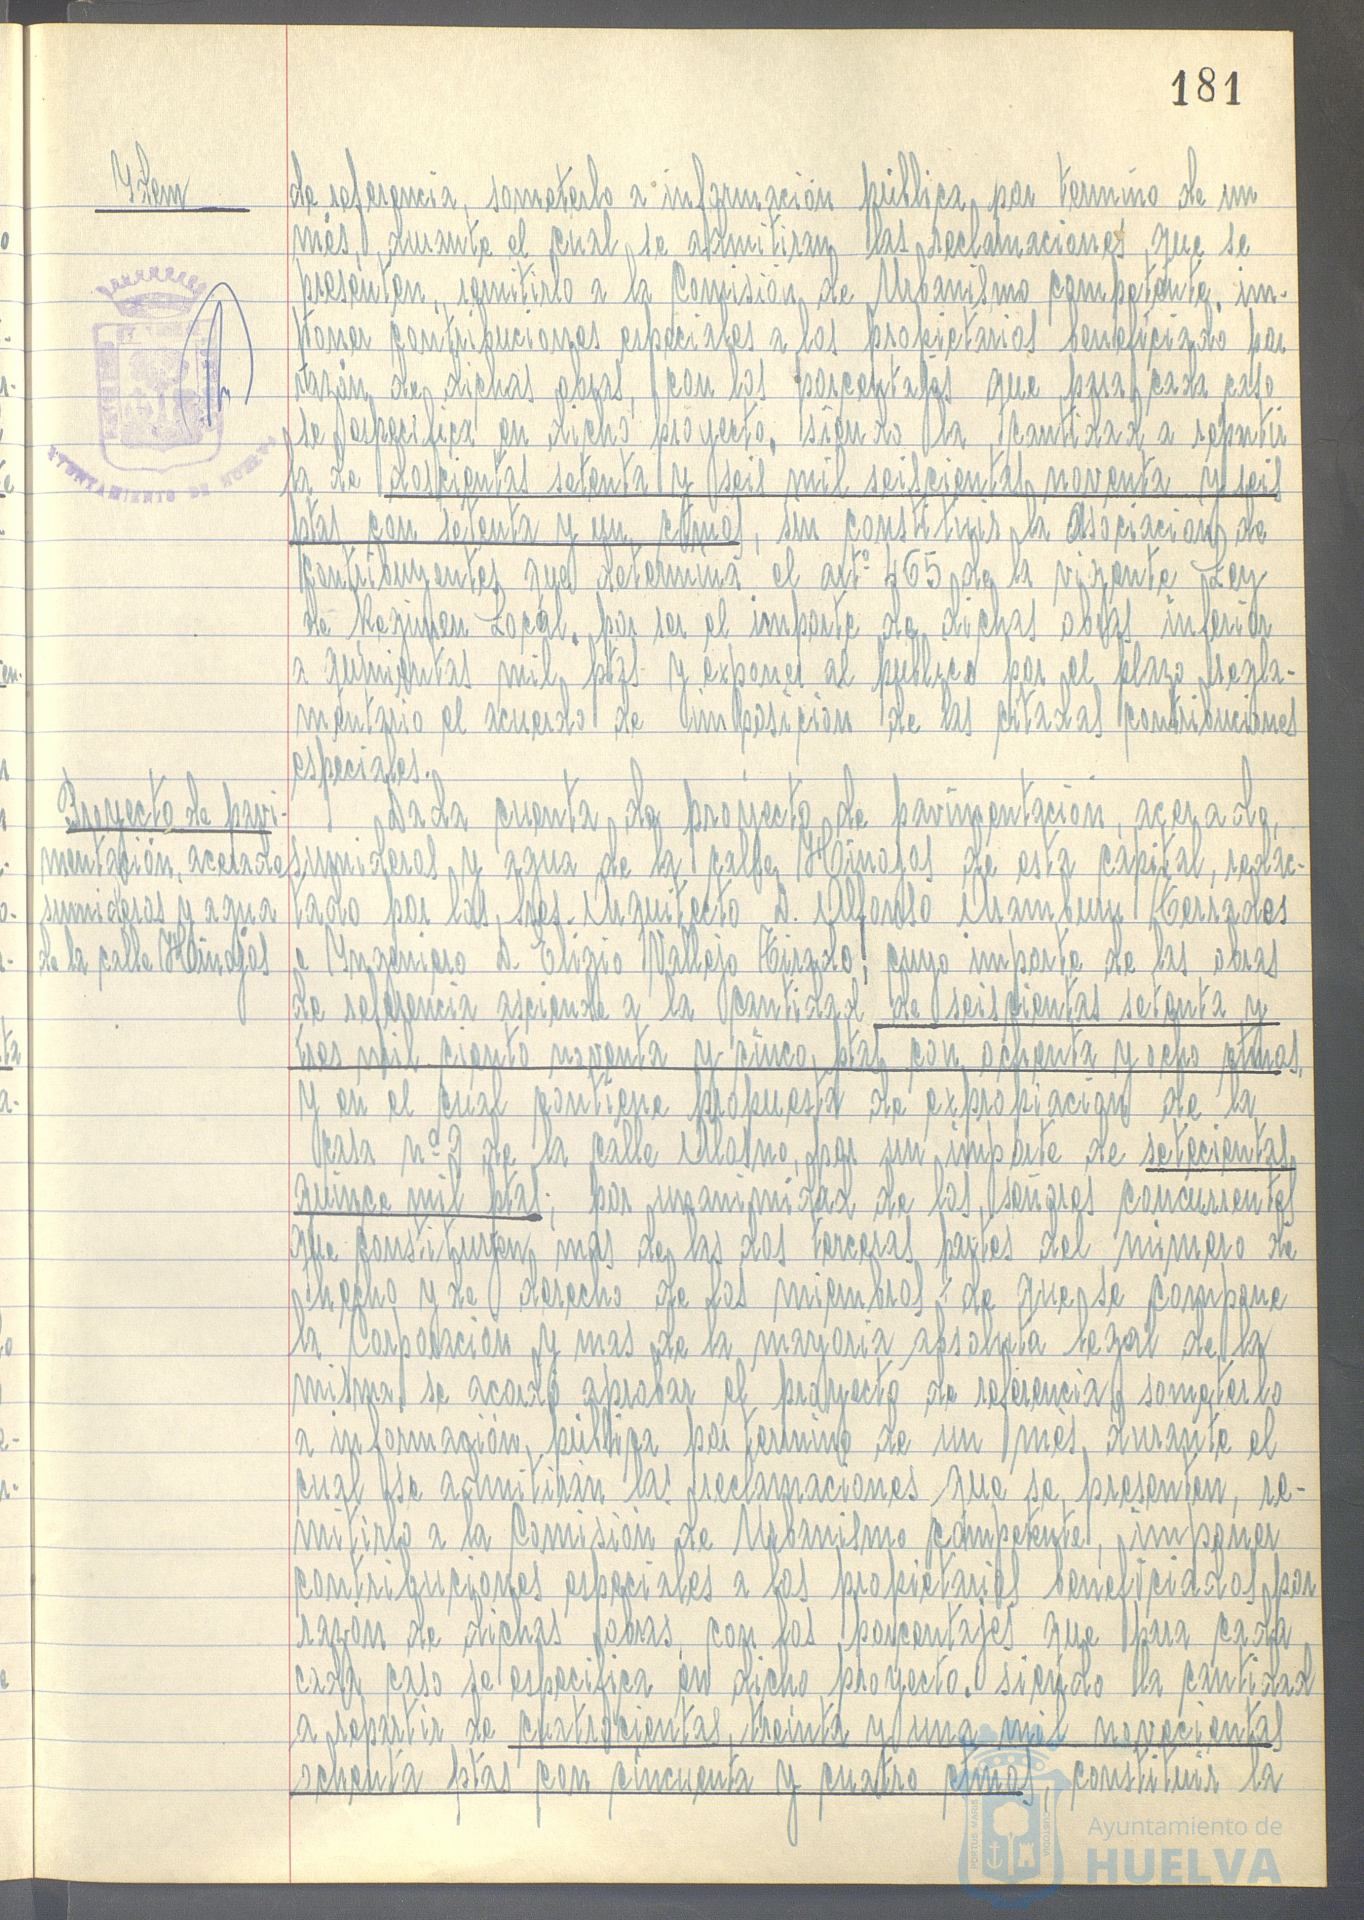 181
Ydem
de referencia, someterlo a información pública por termino de un
mes, durante el cual se admitiran las reclamaciones que se
presenten, remitirlo a la Comisión de Urbanismo competente, im-
poner contribuciones especiales a los propietarios beneficiado por
razón de dichas obras, con los porcentajes que para cada caso
se especifica en dicho proyecto, siendo la cantidad a repartir
la de doscientas setenta y seis mil seiscientas noventa y seis
ptas con setenta y un ctmos, sin constituir la Asociación de
Contribuyentes que determina el artº 465 de la vigente Ley
de Regimen Local, por ser el importe de dichas obras inferior
a quinientas mil ptas y exponer al publico por el plazo regla-
mentario el acuerdo de imposición de las citadas contribuciones
especiales.
Proyecto de pavi-
mentación, acerado
sumideros y agua
de la calle Hinojos
Dada cuenta de proyecto de pavimentación, acerado,
sumideros y agua de la calle Hinojos de esta capital, redac-
tado por los Sres. Arquitecto D. Alfonso Aramburu Terrades
e Yngeniero D. Eligio Vallejo Tirado, cuyo importe de las obras
de referencia asciende a la cantidad de seiscientas setenta y
tres mil ciento noventa y cinco ptas con ochenta y ocho ctmos.
y en el cual contiene propuesta de expropiación de la
casa nº 3 de la calle Alosno, por un importe de setecientas
quince mil ptas; por unanimidad de los señores concurrentes
que constituyen mas de las dos terceras partes del número de
hecho y de derecho de los miembros de que se compone
la Corporación y mas de la mayoria absoluta legal de la
misma, se acordó aprobar el proyecto de referencia, someterlo
a información pública por termino de un mes, durante el
cual se admitirán las reclamaciones que se presenten, re-
mitirlo a la Comisión de Urbanismo competente, imponer
contribuciones especiales a los propietarios beneficiados por
razón de dichas obras, con los porcentajes que para cada
cada caso se especifica en dicho proyecto, siendo la cantidad
a repartir de cuatrocientas treinta y una mil novecientas
ochenta ptas con cincuenta y cuatro ctmos, constituir la
AYUNTAMIENTO DE HUELVA
PORTUS MARIS
CUSTODIA
Ayuntamiento de
HUELVA